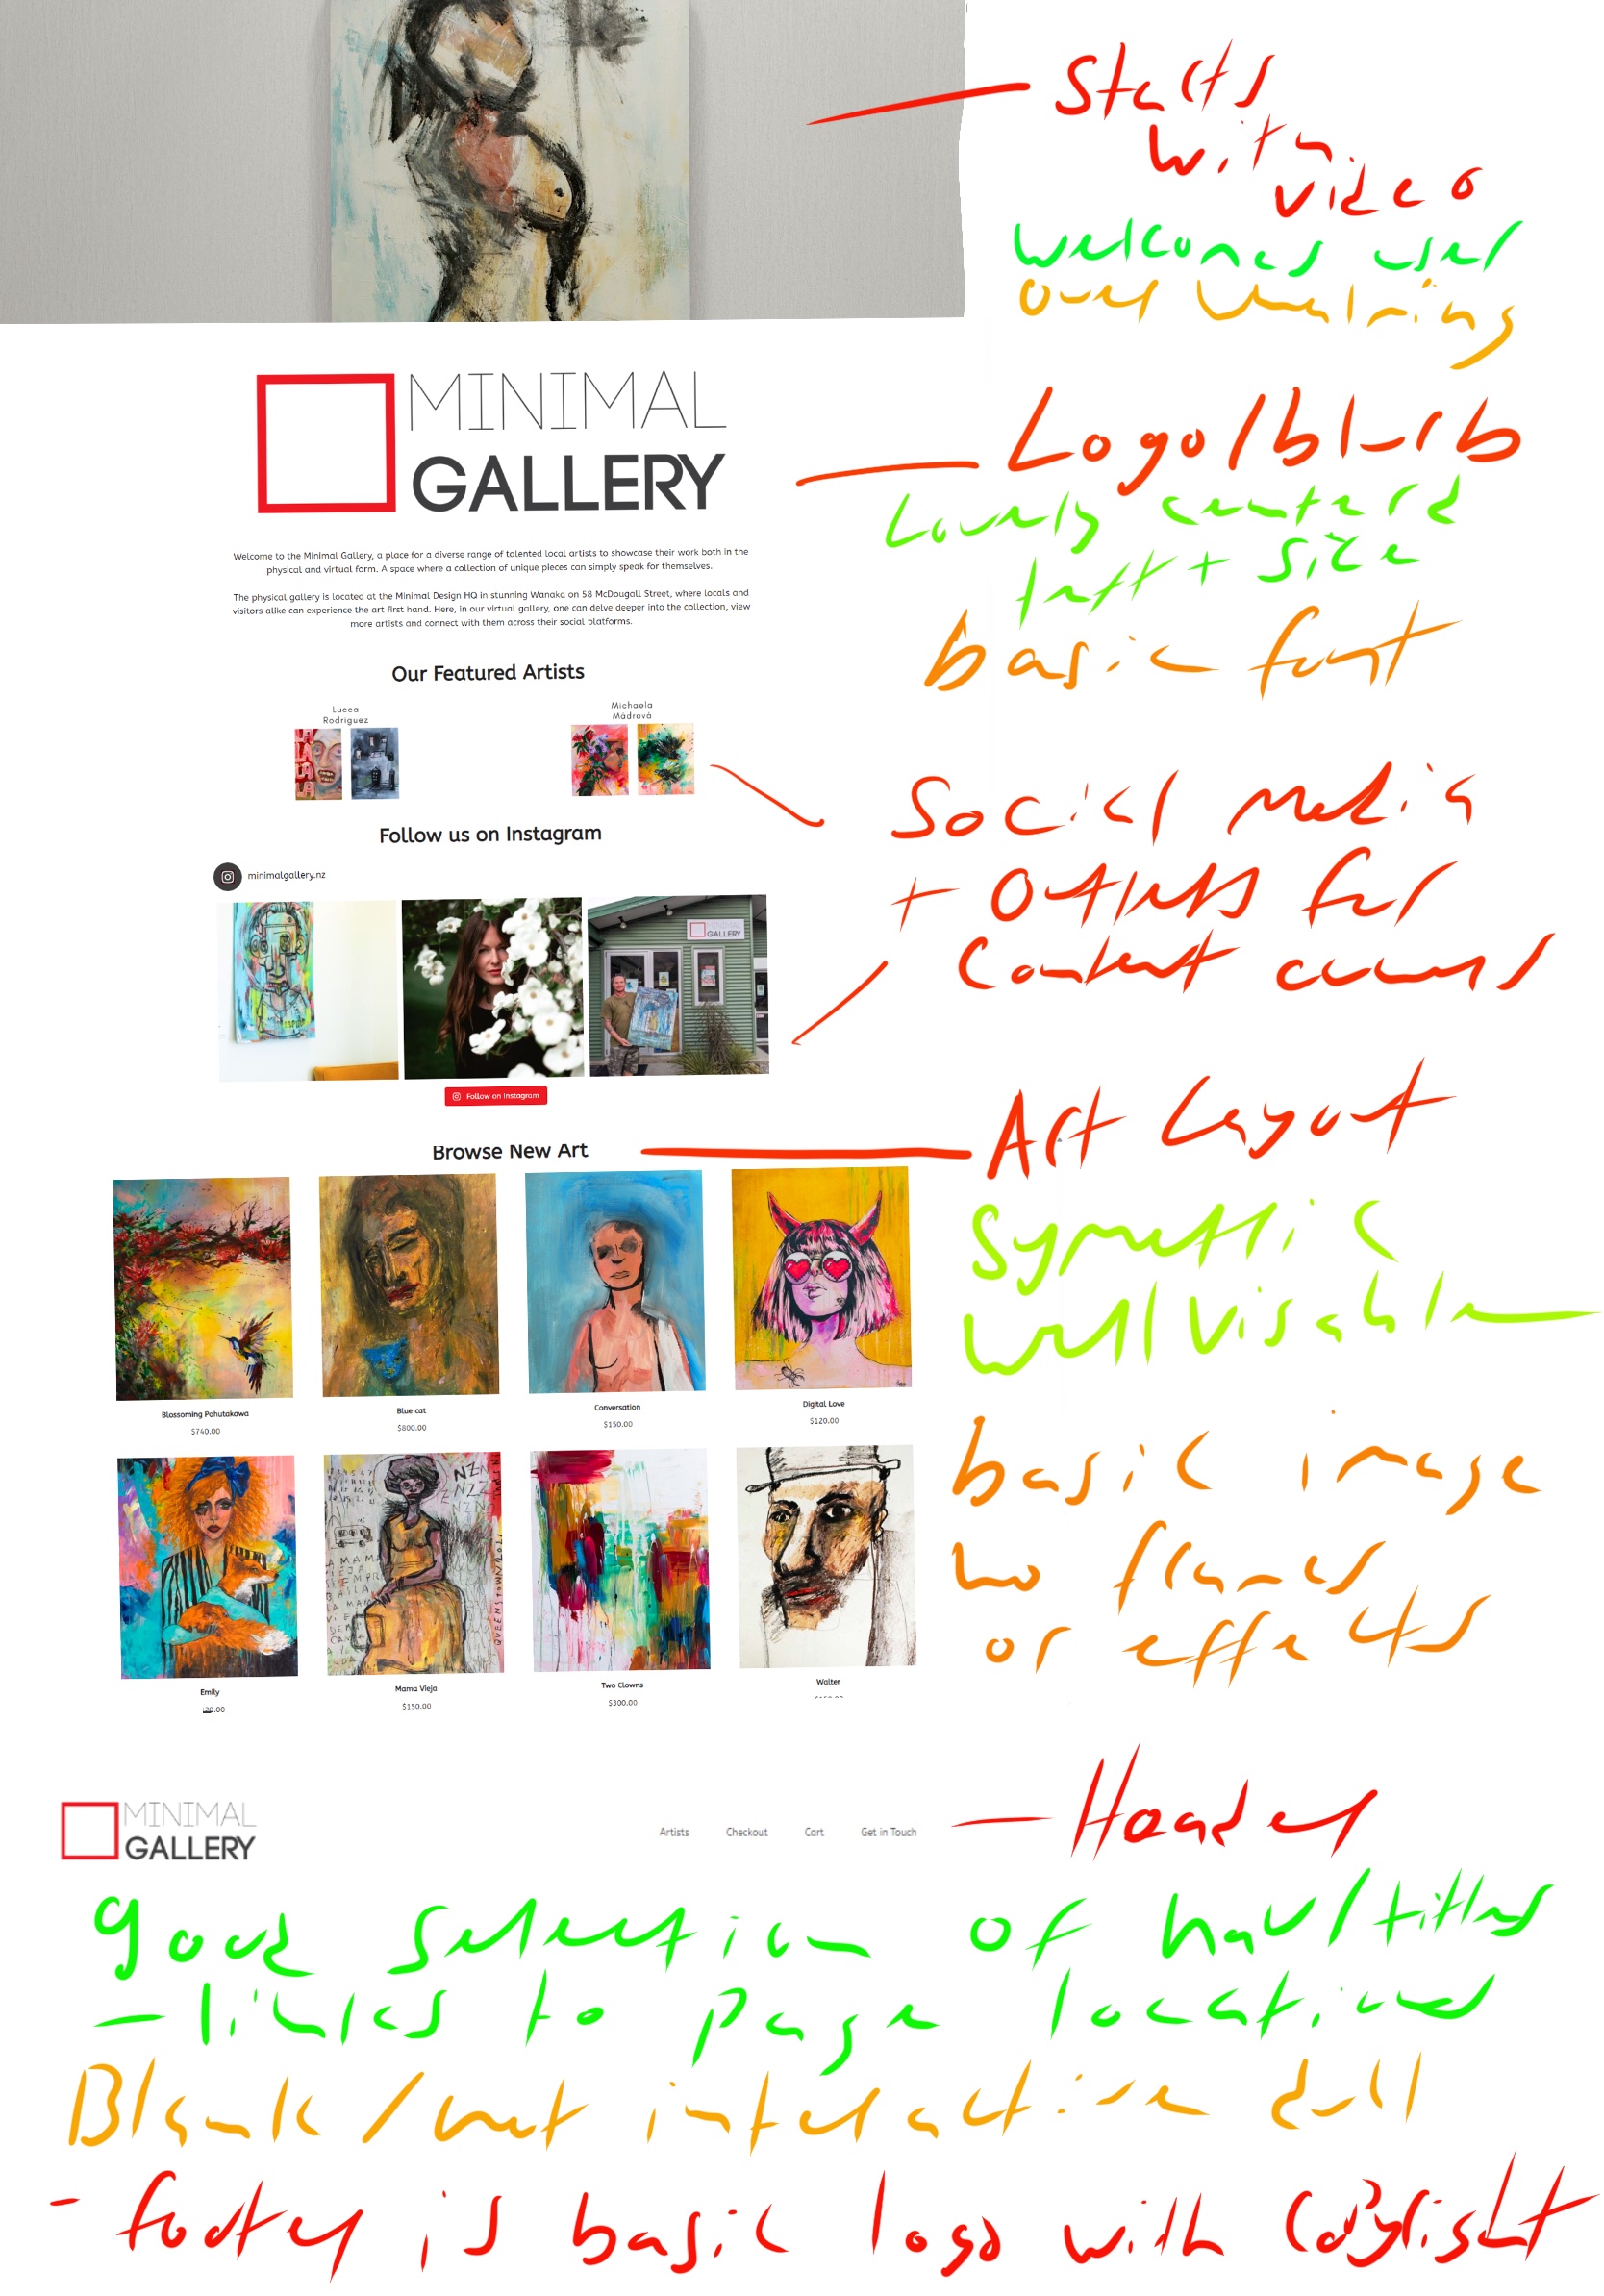 Starts
with
video
welcomes user
over whelming
MINIMAL
GALLERY
Logo/blurb
Lovely centerd
text + size
basic font
Welcome to the Minimal Gallery, a place for a diverse range of talented local artists to showcase their work both in the
physical and virtual form. A space where a collection of unique pieces can simply speak for themselves.
The physical gallery is located at the Minimal Design HQ in stunning Wanaka on 58 McDougall Street, where locals and
visitors alike can experience the art first hand. Here, in our virtual gallery, one can delve deeper into the collection, view
more artists and connect with them across their social platforms.
Our Featured Artists
Lucca
Rodriguez
Michaela
Mádrová
Social media
+ Outlets for
Content owners
Follow us on Instagram
minimalgallery.nz
GALLERY
Follow on Instagram
Browse New Art
Art Layout
Symettric
well visable
Blossoming Pohutakawa
$740.00
Blue cat
$800.00
Conversation
$150.00
Digital Love
$120.00
basic image
no frames
or effects
NZN
NZZ
QUEENSTOWN 2021
Emily
20.00
Mama Vieja
$150.00
Two Clowns
$300.00
Walter
Header
MINIMAL
GALLERY
Artists
Checkout
Cart
Get in Touch
good selection of nav/titles
- links to page locations
Blank / not interactive dull
- footer is basic logo with copyright